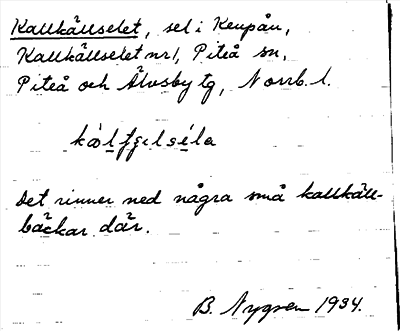 Kallkällselet, sel i Keupån,
Kallkällselet nr 1, Piteå sn,
Piteå och Älvsby tg, Norrb. l.
Det rinner ned några små kallkäll-
bäckar där.
B. Nygren 1934.